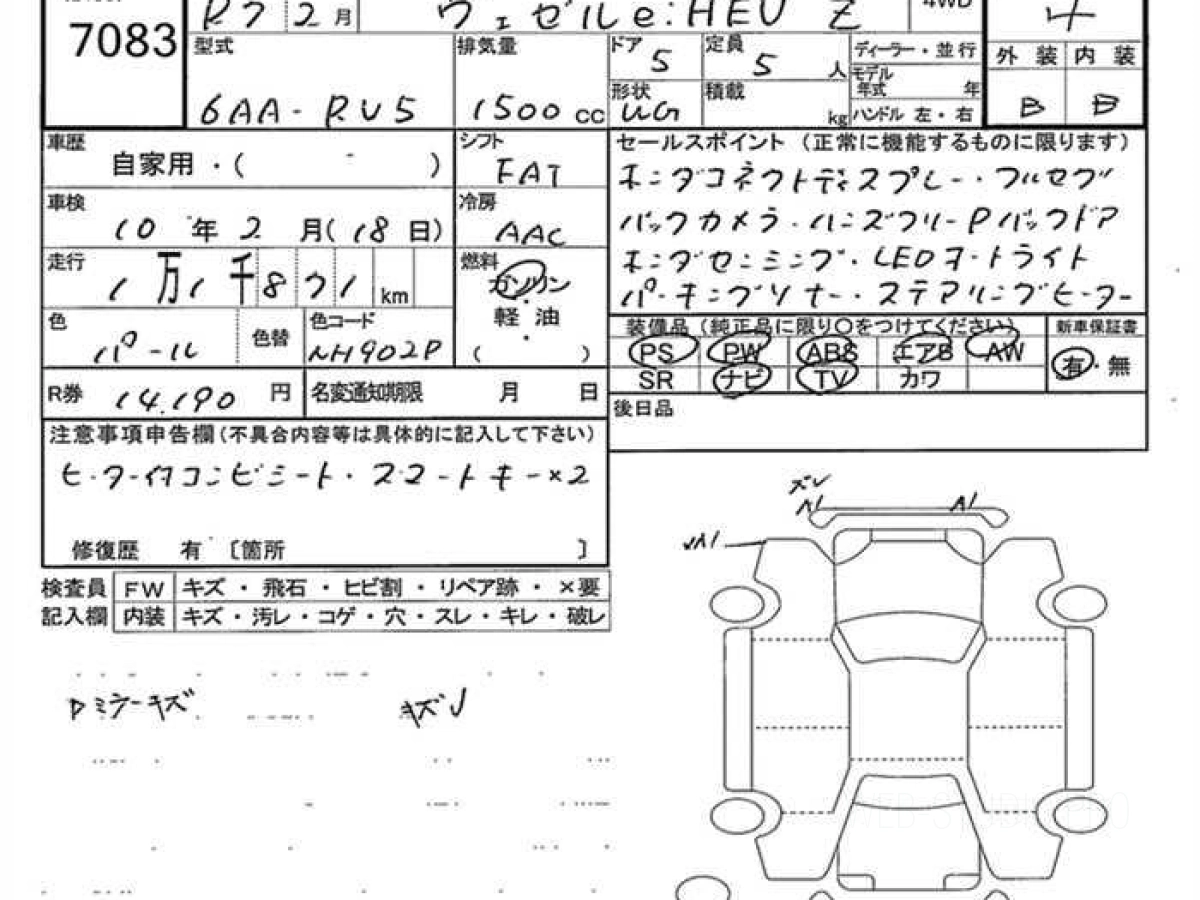 7083
R7 2月 ヴェゼル e:HEV Z 4WD 4
型式 6AA-RV5
排気量 1500 cc
ドア 5
定員 5 人
形状 WG
積載 kg
ディーラー・並行
モデル年式 年
ハンドル 左・右
外装 内装
B B
車歴 自家用・( )
シフト FAT
車検 10年2月(18日)
冷房 AAC
走行 1万1千871 km
燃料 ガソリン・軽油・( )
色 パール 色替
色コード NH902P
R券 14,190 円
名変通知期限 月 日
セールスポイント (正常に機能するものに限ります)
ホンダコネクトディスプレー・フルセグ
バックカメラ・ハンズフリーPバックドア
ホンダセンシング・LEDオートライト
パーキングソナー・ステアリングヒーター
装備品 (純正品に限り○をつけてください)
PS PW ABS エアB AW
SR ナビ TV カワ
新車保証書
有・無
後日品
注意事項申告欄(不具合内容等は具体的に記入して下さい)
ヒーター付コンビシート・スマートキー×2
修復歴 有 〔箇所 〕
検査員 FW キズ・飛石・ヒビ割・リペア跡・×要
記入欄 内装 キズ・汚レ・コゲ・穴・スレ・キレ・破レ
Dミラーキズ キズJ
ズレ
A1 A1
A1